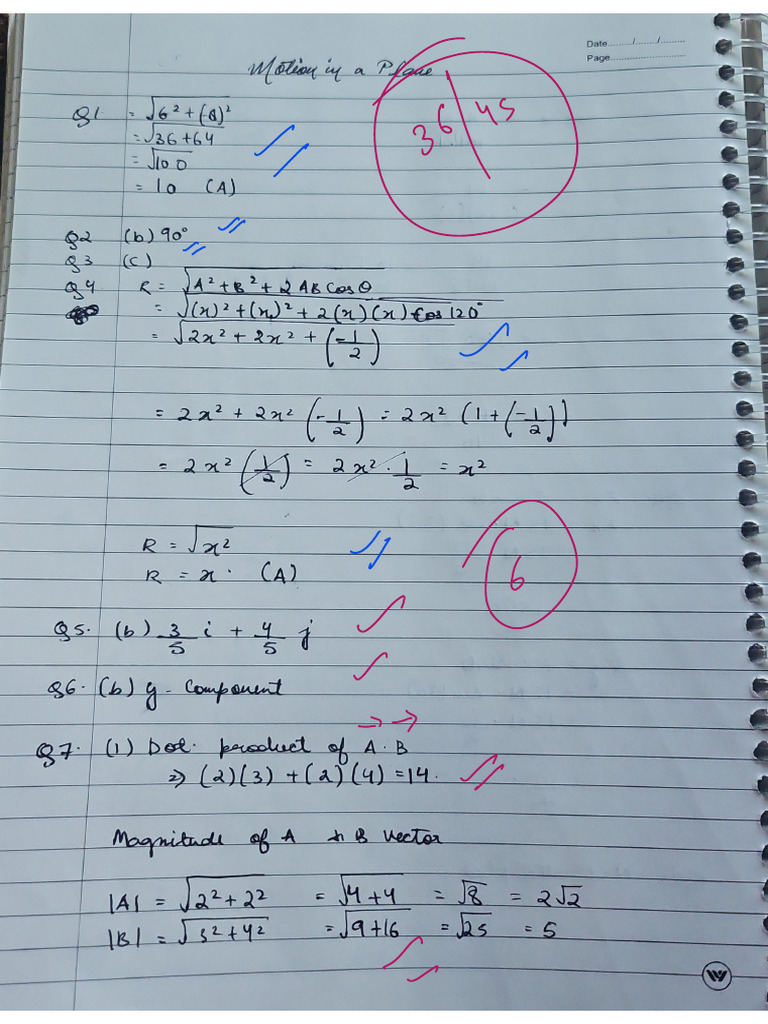 Date......../......../.........
Page.............................
Motion in a Plane
36/45
Q1. = √(6² + (-8)²)
= √(36+64)
= √100
= 10 (A)
Q2 (b) 90°
Q3 (c)
Q4 R = √(A² + B² + 2 AB Cos θ)
= √((x)² + (x)² + 2(x)(x) Cos 120°)
= √(2x² + 2x² + (-1/2))
= 2x² + 2x² (-1/2) = 2x² (1 + (-1/2))
= 2x² (1/2) = 2x² · 1/2 = x²
R = √x²
R = x. (A)
6
Q5. (b) 3/5 i + 4/5 j
Q6. (b) y - Component
→ →
Q7. (1) Dot. product of A.B
⇒ (2)(3) + (2)(4) = 14.
Magnitude of A & B vector
|A| = √(2² + 2²) = √(4+4) = √8 = 2√2
|B| = √(3² + 4²) = √(9+16) = √25 = 5
W